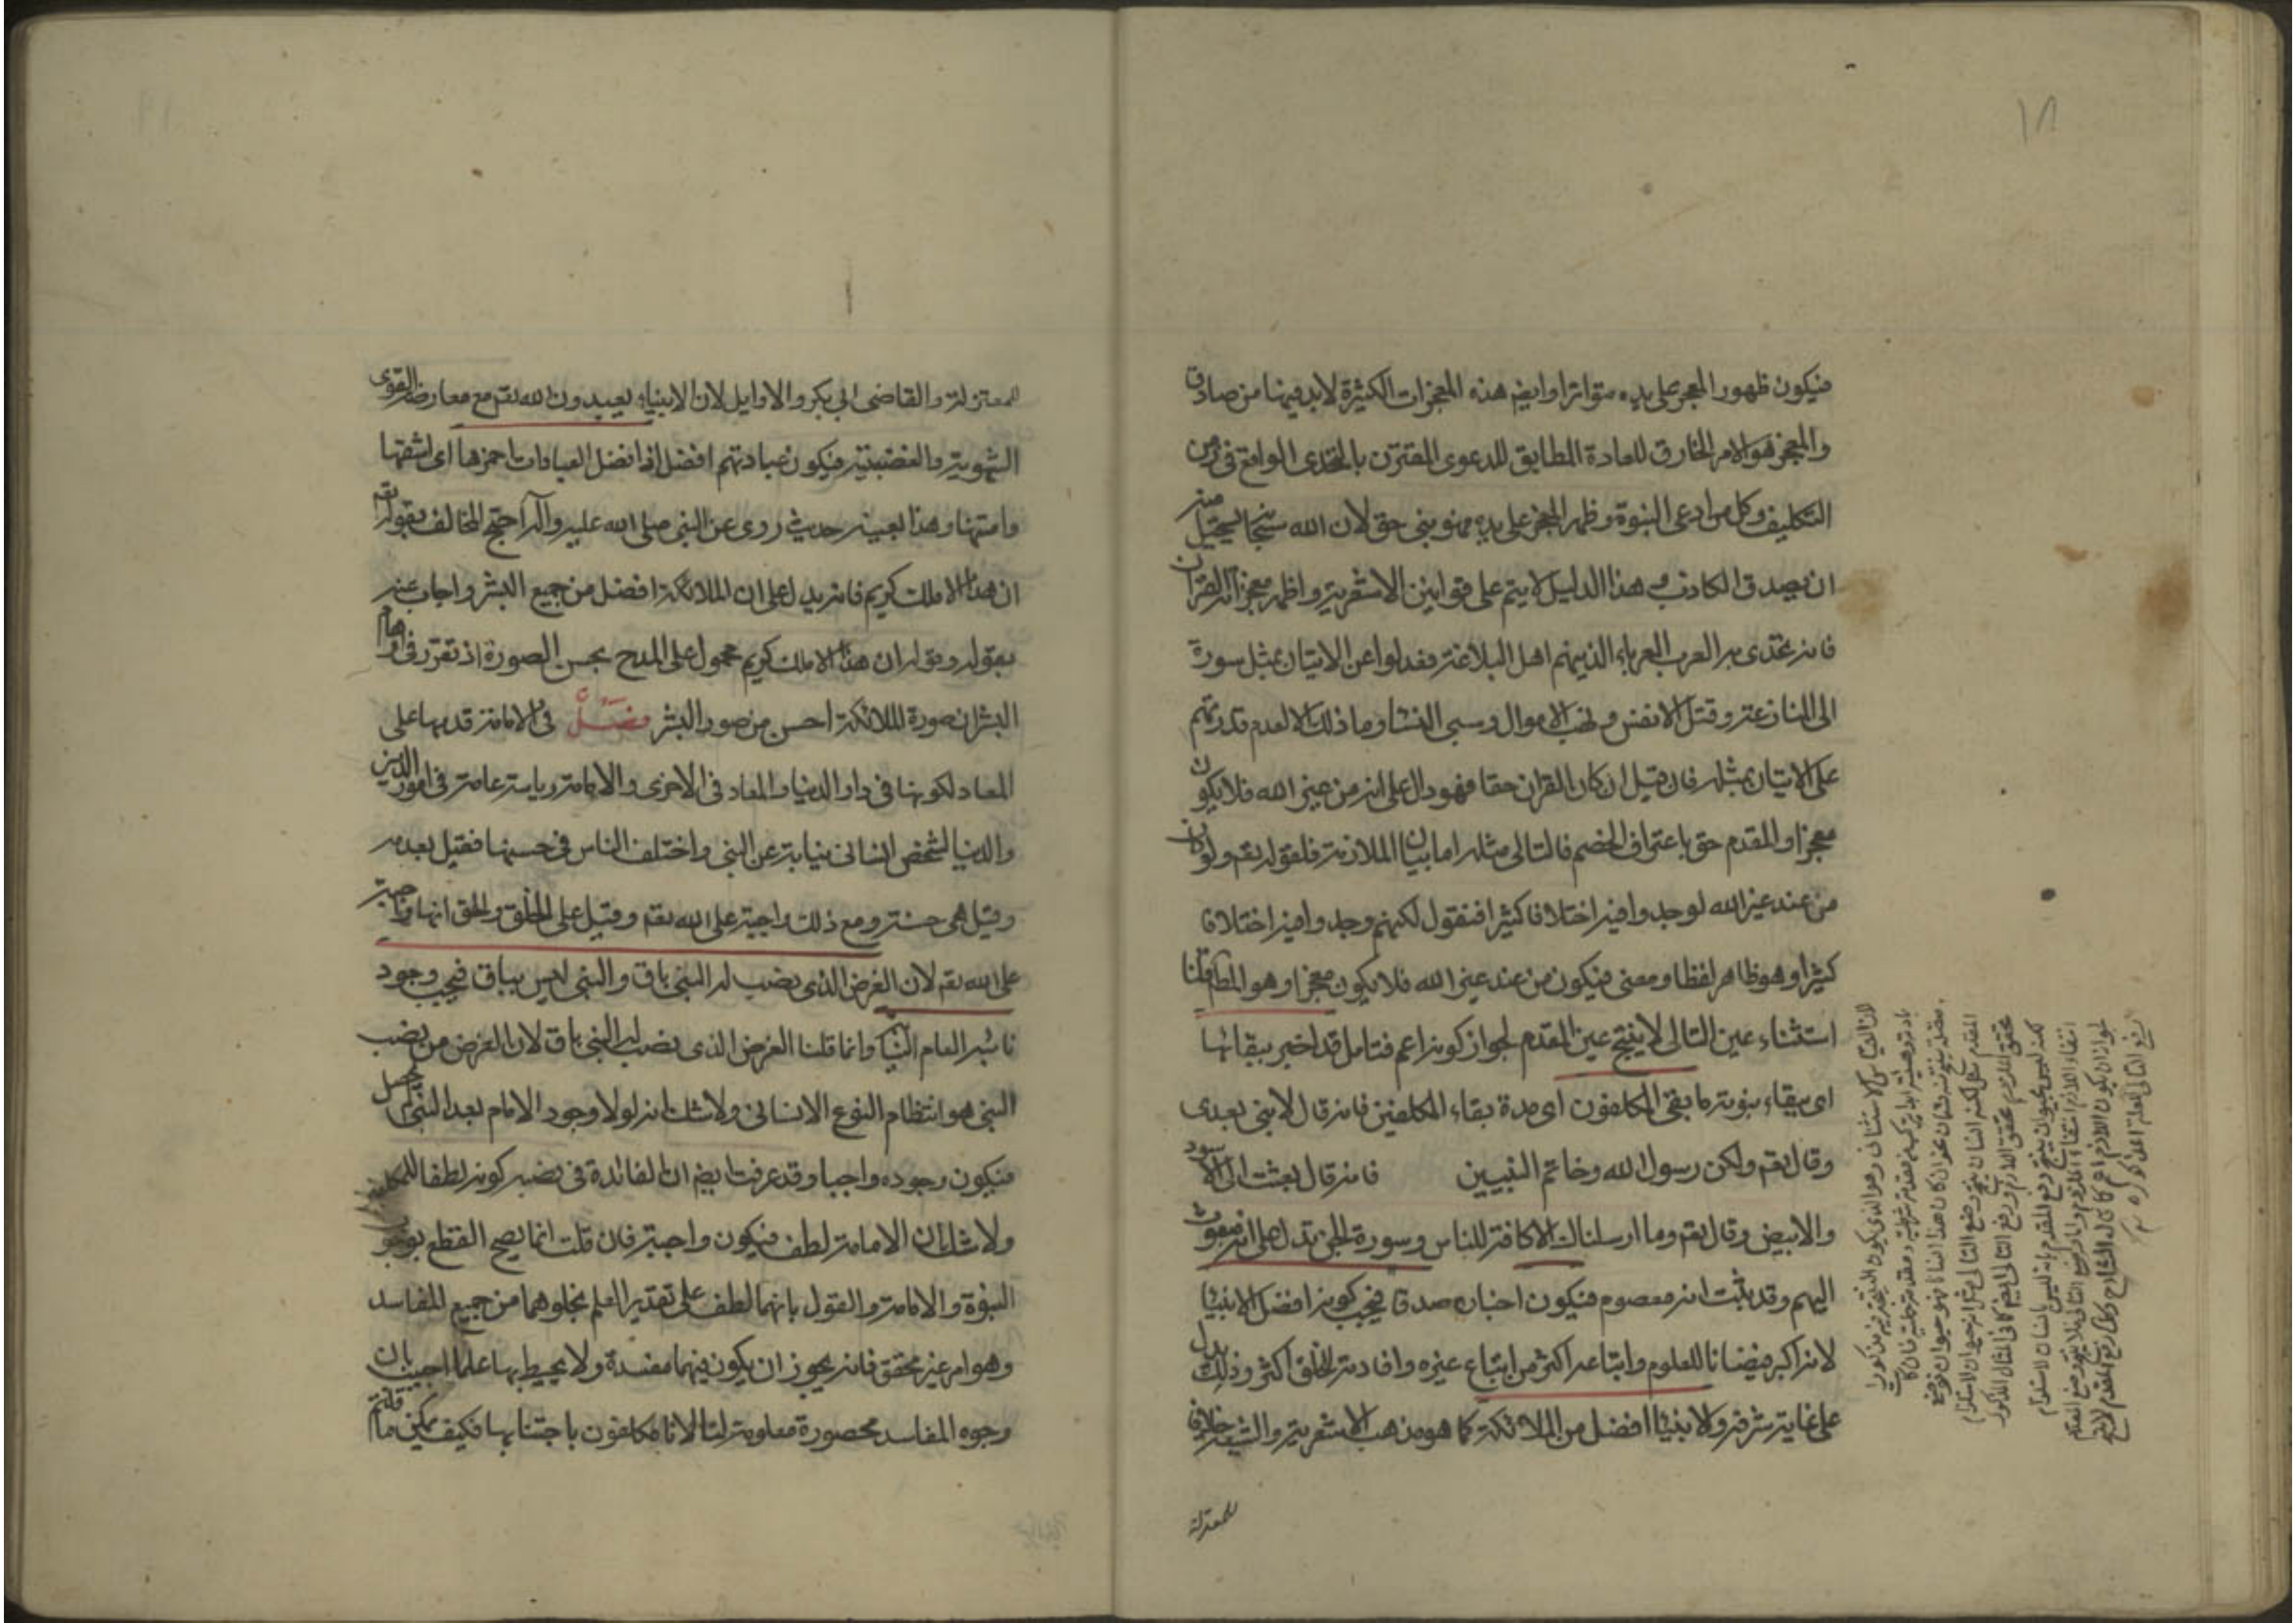 ١٨
فيكون ظهور المعجز على يده متواترا وايضا هذه المعجزات الكثيرة لابد فيها من صادق
والمعجز هو الامر الخارق للعادة المطابق للدعوى المقترن بالتحدى الواقع فى زمن
التكليف وكل من ادعى النبوة وظهر المعجز على يده فهو نبى حق لان الله سبحانه يستحيل منه
ان يصدق الكاذب وهذا الدليل لا يتم على قوانين الاشعرية واظهر معجزاته القرآن
فانه تحدى به العرب العرباء الذينهم اهل البلاغة فعدلوا عن الاتيان بمثل سورة
الى المنازعة وقتل الانفس ونهب الاموال وسبى النساء وما ذلك الا لعدم قدرتهم
على الاتيان بمثله فان قيل ان كان القران حقا فهو دال على انه من غير الله فلا يكون
معجزا والمقدم حق باعتراف الخصم فالتالى مثله اما بيان الملازمة فلقوله تعم ولو كان
من عند غير الله لوجدوا فيه اختلافا كثيرا فنقول لكنهم وجدوا فيه اختلافا
كثيرا وهو ظاهر لفظا ومعنى فيكون من عند غير الله فلا يكون معجزا وهو المط قلنا
استثناء عين التالى لا ينتج عين المقدم لجواز كونه اعم فتامل قد اخبر ببقائها
اى ببقاء نبوته ما بقى المكلفون اى مدة بقاء المكلفين فانه قال لا نبى بعدى
وقال تعم ولكن رسول الله وخاتم النبيين فانه قال بعثت الى الاسود
والابيض وقال تعم وما ارسلناك الا كافة للناس وسورة الجن تدل على انه مبعوث
اليهم وقد ثبت انه معصوم فيكون اخباره صدقا فيجب كونه افضل الانبياء
لانه اكبر فيضانا للعلوم واتباعه اكثر من اتباع غيره وافادته للخلق اكثر وذلك يدل
على غاية شرفه والانبياء افضل من الملائكة كما هو مذهب الاشعرية والشيعة خلافا
للمعتزلة
للمعتزلة والقاضى ابى بكر والاوايل لان الانبياء يعبدون الله تعم مع معارضة القوى
الشهوية والغضبية فيكون عبادتهم افضل اذ افضل العبادات احمزها اى اشقها
وامتنها وهذا بعينه حديث روى عن النبى صلى الله عليه وآله احتج المخالف بقوله تعم
ان هذا الا ملك كريم فانه يدل على ان الملائكة افضل من جميع البشر واجاب عنه
بقوله وقوله ان هذا الا ملك كريم محمول على المدح بحسن الصورة اذ تقرر فى اوهام
البشر ان صورة الملائكة احسن من صور البشر فصل فى الامامة قدمها على
المعاد لكونها فى دار الدنيا والمعاد فى الاخرى والامامة رياسة عامة فى امور الدين
والدنيا لشخص انسانى نيابة عن النبى واختلف الناس فى حسنها فقيل بعدمه
وقيل هى حسنة ومع ذلك واجبة على الله تعم وقيل على الخلق والحق انها واجبة
على الله تعم لان الغرض الذى نصب له النبى باق والنبى ليس بباق فيجب وجود
نائبه العام وانما قلنا الغرض الذى نصب له النبى باق لان الغرض من نصب
النبى هو انتظام النوع الانسانى ولا شك انه لولا وجود الامام بعد النبى لم يحصل
فيكون وجوده واجبا وقد عرفت ايضم ان الفائدة فى نصبه كونه لطفا للمكلفين
ولا شك ان الامامة لطف فيكون واجبة فان قلت انما يصح القطع بوجوب
النبوة والامامة والقول بانهما لطف على تقدير العلم بخلوهما من جميع المفاسد
وهو امر غير محقق فانه يجوز ان يكون فيهما مفسدة ولا يحيط بها علما اجيب بان
وجوه المفاسد محصورة معلومة لنا لانا مكلفون باجتنابها فكيف يمكن ما قلتم